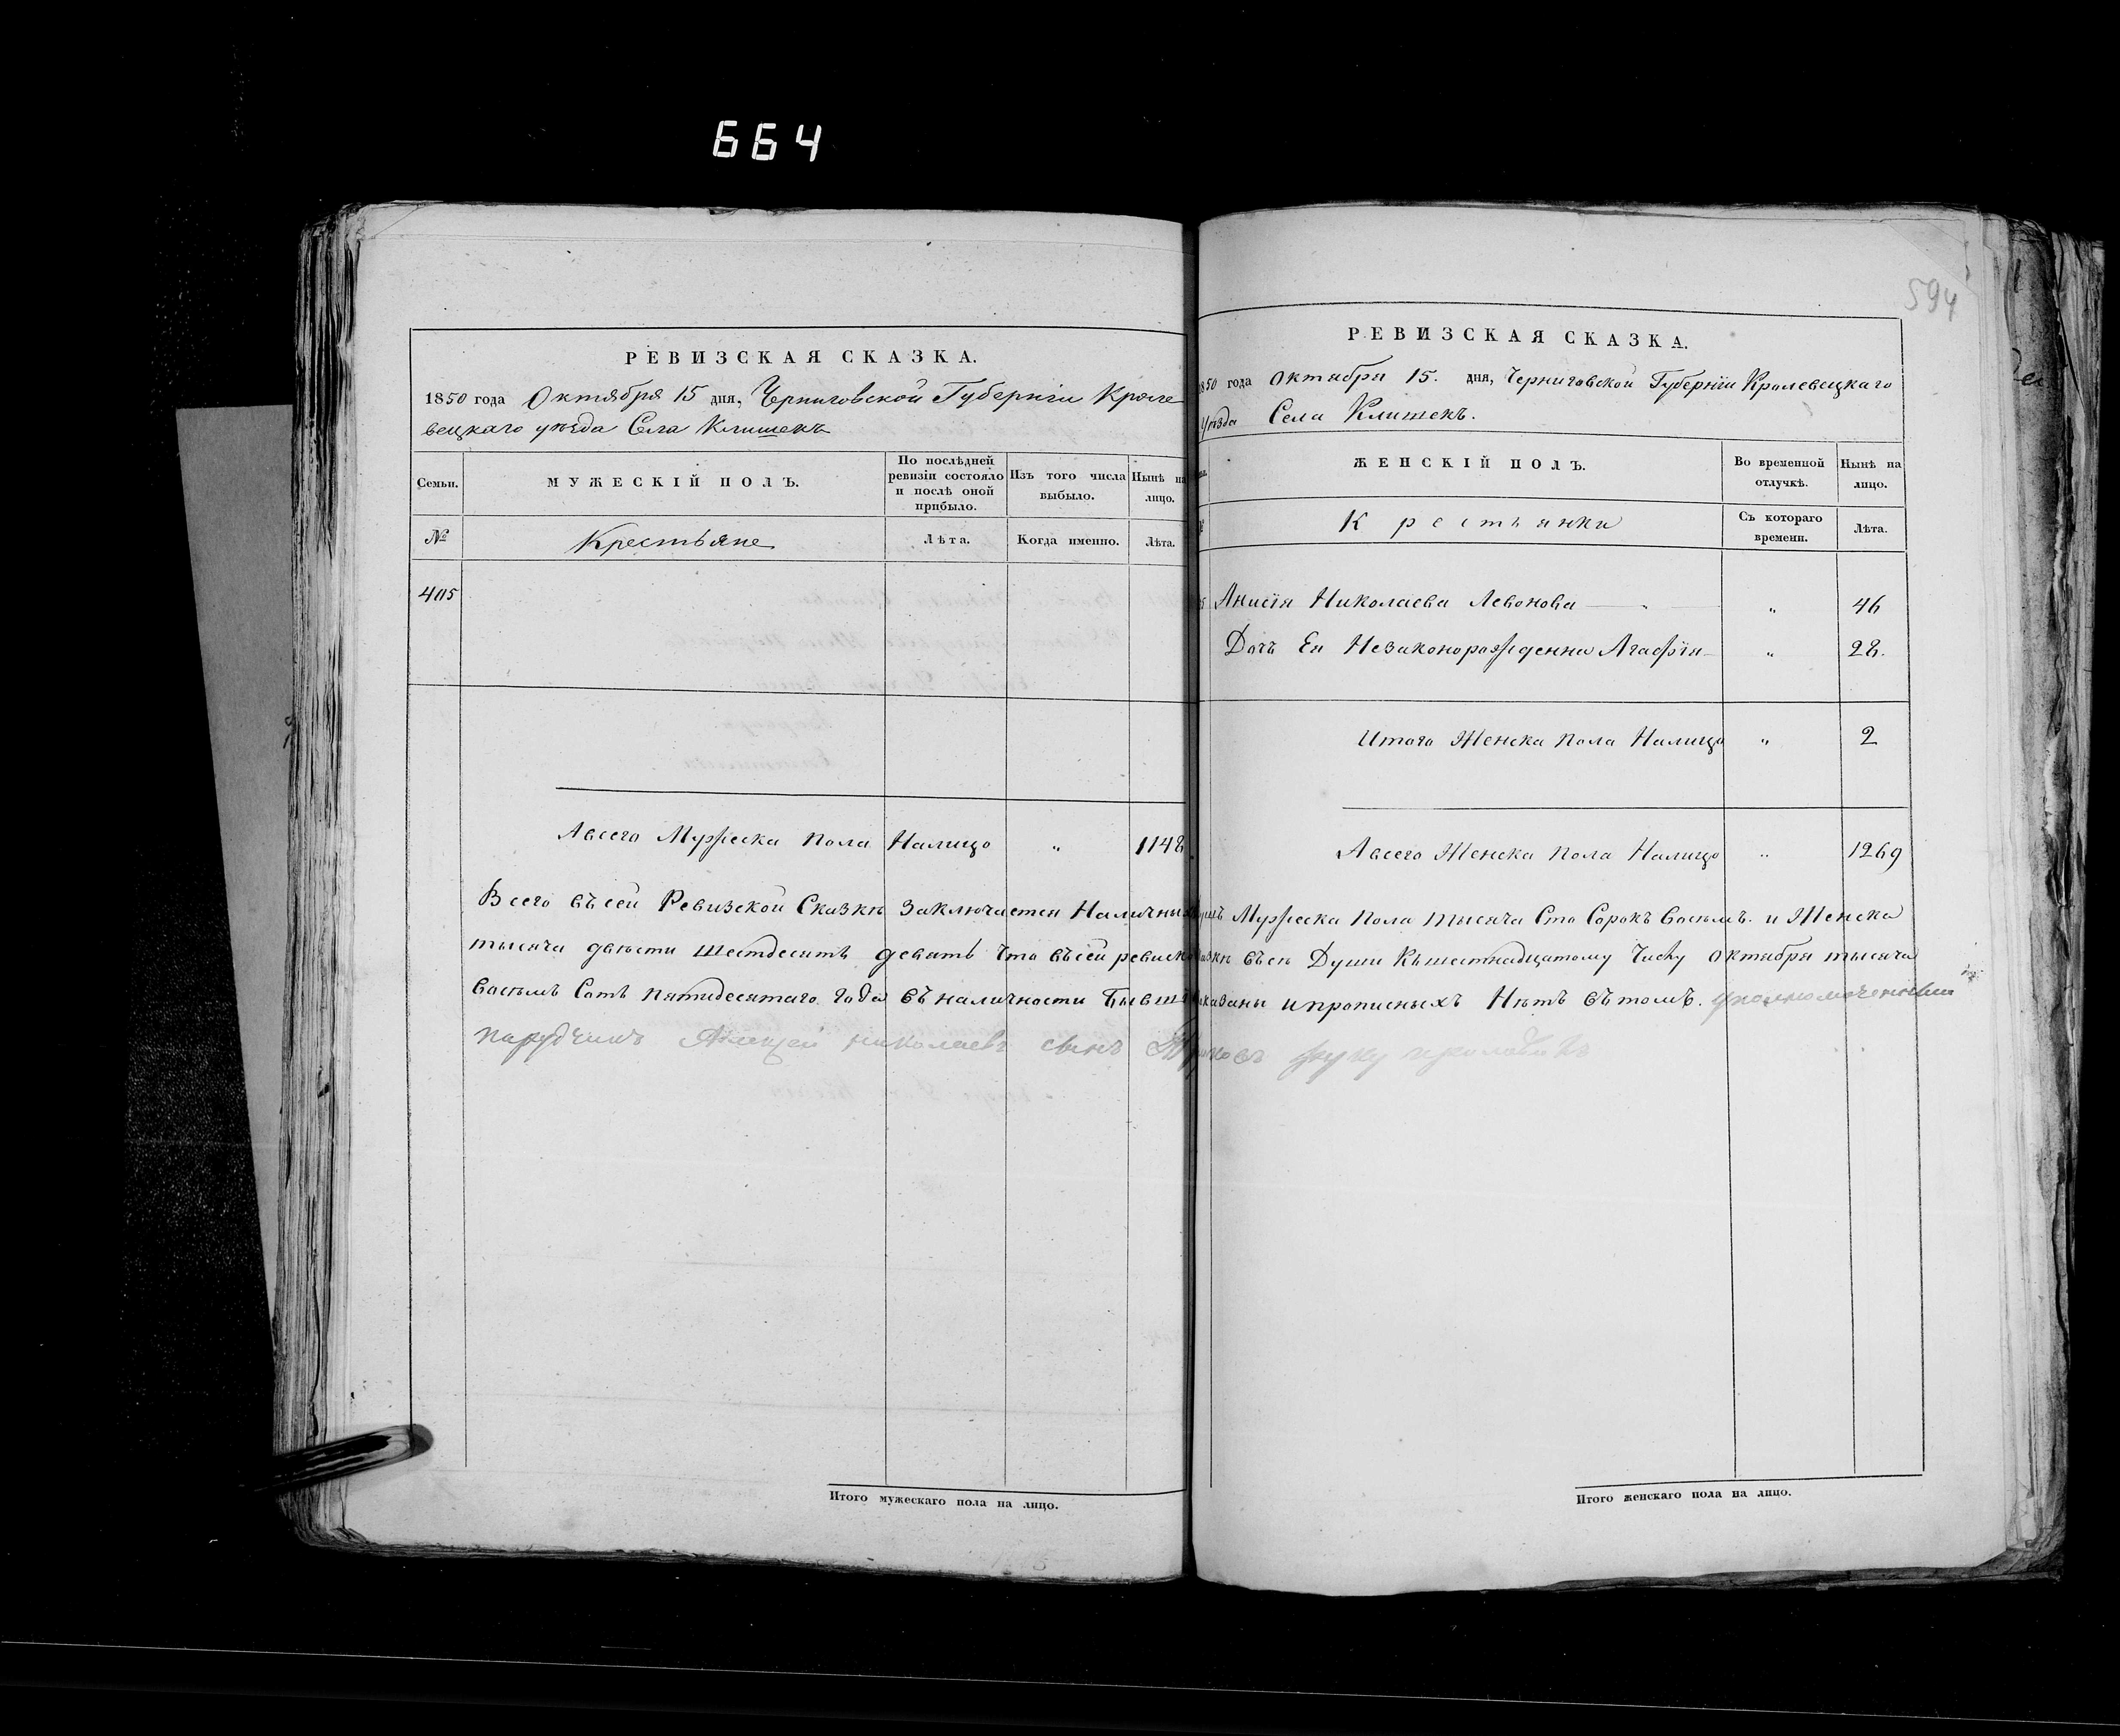 664
594
РЕВИЗСКАЯ СКАЗКА.
1850 года Октября 15 дня, Черниговской Губерніи Кроле
вецкаго уѣзда Села Клишекъ
Семьи.
МУЖЕСКІЙ ПОЛЪ.
По послѣдней ревизіи состояло и послѣ оной прибыло.
Изъ того числа выбыло.
Нынѣ на лицо.
№
Крестьяне
Лѣта.
Когда именно.
Лѣта.
405
Авсего Мужеска пола Налицо " 1148
РЕВИЗСКАЯ СКАЗКА.
1850 года Октября 15. дня, Черниговской Губерніи Кролевецкаго
Уѣзда Села Клишекъ.
ЖЕНСКІЙ ПОЛЪ.
Во временной отлучкѣ.
Нынѣ на лицо.
Крестьянки
Съ котораго времени.
Лѣта.
Анисія Николаева Левонова " 46
Дочь Ея Незаконорожденна Агафія " 28.
Итого Женска пола Налицо " 2
Авсего Женска пола Налицо " 1269
Всего въсей Ревизской Сказкѣ Заключается Мужеска Пола тысяча Сто Сорокъ Восемъ. и Женска
тысяча двѣсти шестдесятъ девять Что въсей Души Къшестнадцатому Числу октября тысяча
Восемъ Сотъ пятидесятаго года въ наличности Ипрописныхъ Нѣтъ вътомъ. уполномоченный
николаевъ сынъ
Итого мужескаго пола на лицо.
Итого женскаго пола на лицо.